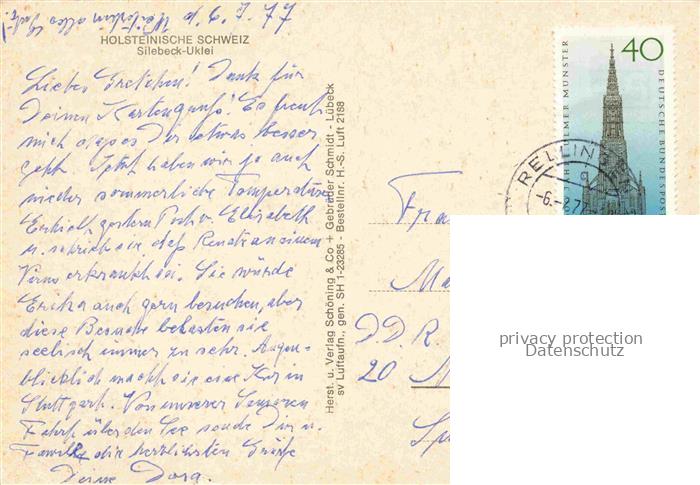 d. 6. 7. 77
HOLSTEINISCHE SCHWEIZ
Silebeck-Uklei
Liebes Gretchen! Dank für
Deinen Kartengruß! Es freut
mich daß es Dir etwas besser
geht. Jetzt haben wir ja auch
wieder sommerliche Temperaturen
Erhielt gestern Post v. Elisabeth
u. schrieb sie daß Renate an einem
Virus erkrankt sei. Sie würde
Erika auch gern besuchen, aber
diese Besuche belasten sie
seelisch immer zu sehr. Augen-
blicklich macht sie eine Kur in
Stuttgart. Von unserer
Fahrt über den See sende Dir u.
Familie die herzlichsten Grüße
Deine Dora.
Herst. u. Verlag Schöning & Co + Gebrüder Schmidt - Lübeck
sv Luftaufn., gen. SH 1-23285 - Bestellnr. H.-S. Luft 2168
40
JAHRE ULMER MÜNSTER
DEUTSCHE BUNDESPOST
RELLING
a
-6.-7.77
Fra
Ma
DDR.
20
privacy protection
Datenschutz